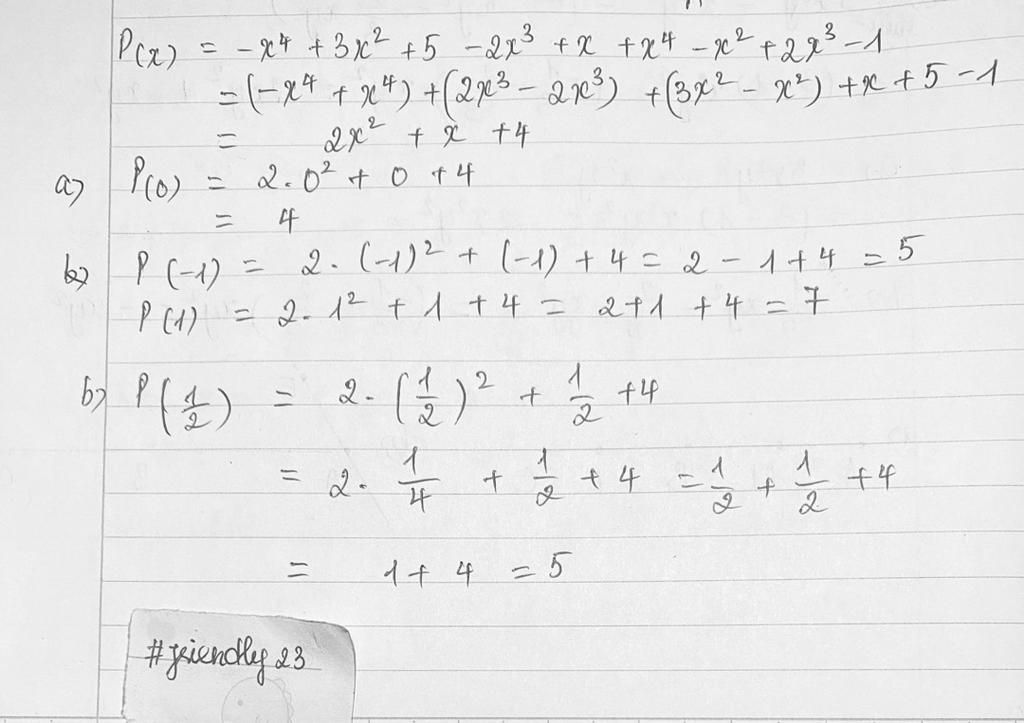 P(x) = -x⁴ + 3x² + 5 - 2x³ + x + x⁴ - x² + 2x³ - 1
= (-x⁴ + x⁴) + (2x³ - 2x³) + (3x² - x²) + x + 5 - 1
= 2x² + x + 4
a) P(0) = 2.0² + 0 + 4
= 4
b) P(-1) = 2.(-1)² + (-1) + 4 = 2 - 1 + 4 = 5
P(1) = 2.1² + 1 + 4 = 2+1 + 4 = 7
b) P(1/2) = 2.(1/2)² + 1/2 + 4
= 2. 1/4 + 1/2 + 4 = 1/2 + 1/2 + 4
= 1 + 4 = 5
#friendly 23